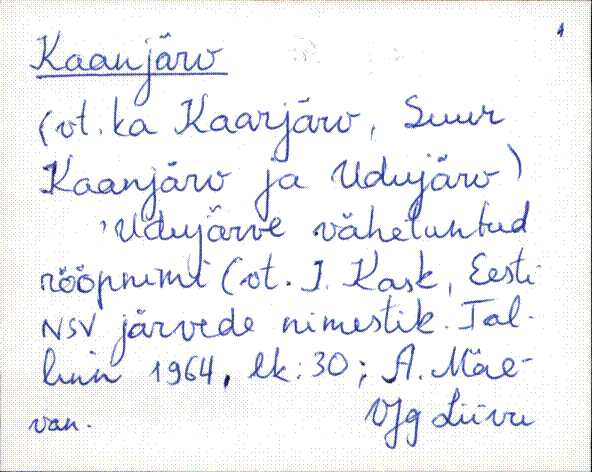 Kaanjärv
(vt. ka Kaarjärv, Suur
Kaanjärv ja Udujärv)
'Udujärve vähetuntud
rööpnimi (vt. J. Kask, Eesti
NSV järvede nimestik. Tal-
linn 1964, lk. 30; A. Mäe-
van.
VJg Liivu